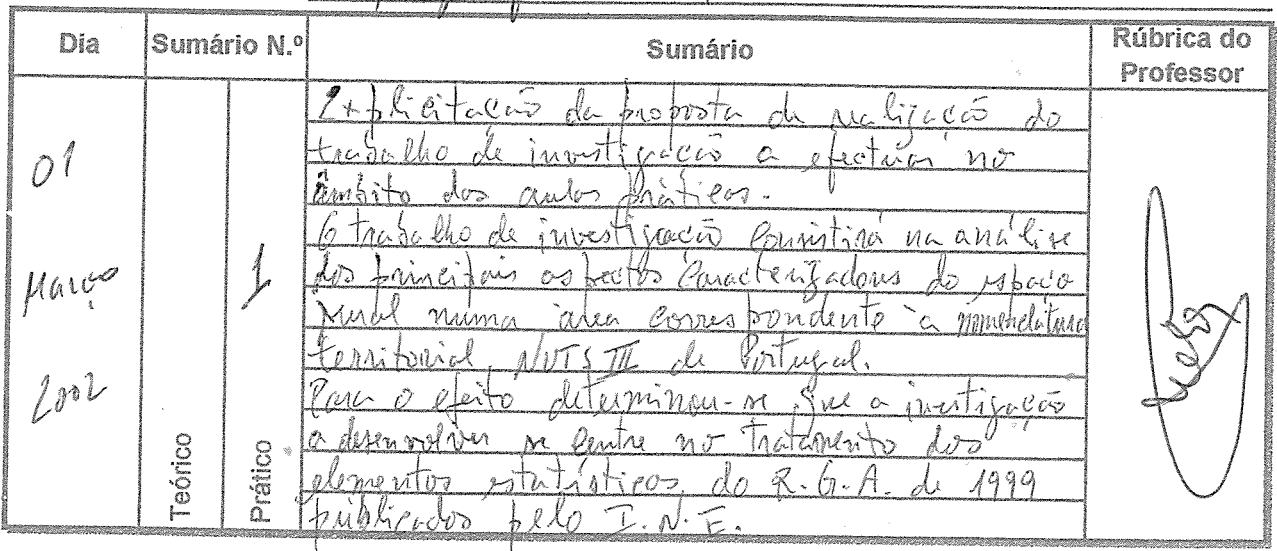 Dia Sumário N.º Sumário Rúbrica do Professor
01
Março
2002
Teórico
1
Prático
Explicitação da proposta de realização do
trabalho de investigação a efectuar no
âmbito das aulas práticas.
O trabalho de investigação consistirá na análise
dos principais aspectos caracterizadores do espaço
rural numa área correspondente à nomenclatura
territorial NUTS III de Portugal.
Para o efeito determinou-se que a investigação
a desenvolver se centre no tratamento dos
elementos estatísticos do R.G.A. de 1999
publicados pelo I.N.E.